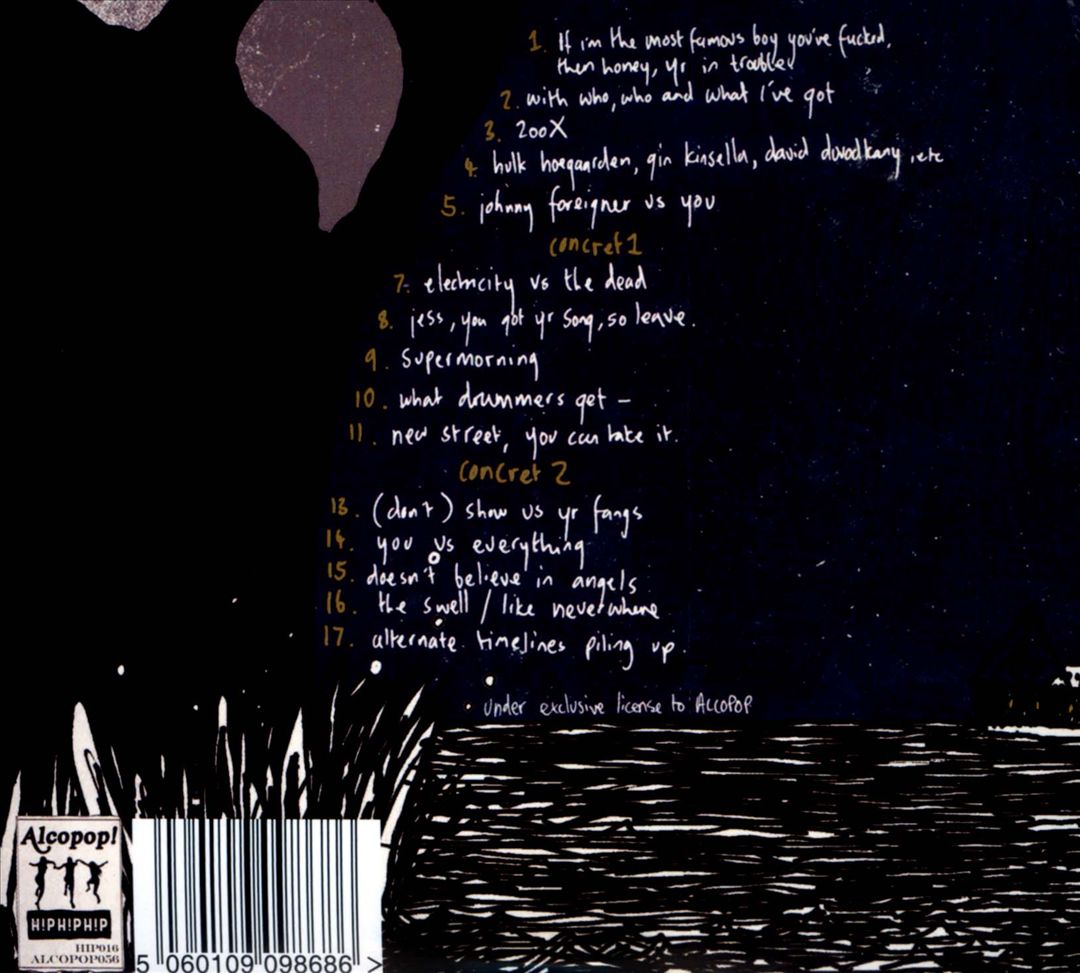 1. If i'm the most famous boy you've fucked,
then honey, yr in trouble
2. with who, who and what I've got
3. 200X
4. hulk hoegaarden, gin kinsella, david duvodkany, etc
5. johnny foreigner vs you
concret 1
7. electricity vs the dead
8. jess, you got yr song, so leave.
9. supermorning
10. what drummers get –
11. new street, you can take it.
concret 2
13. (don't) show us yr fangs
14. you vs everything
15. doesn't believe in angels
16. the swell / like neverwhere
17. alternate timelines piling up.
• under exclusive license to ALCOPOP
Alcopop!
H!PH!PH!P
HIP016
ALCOPOP056
5 060109 098686 >